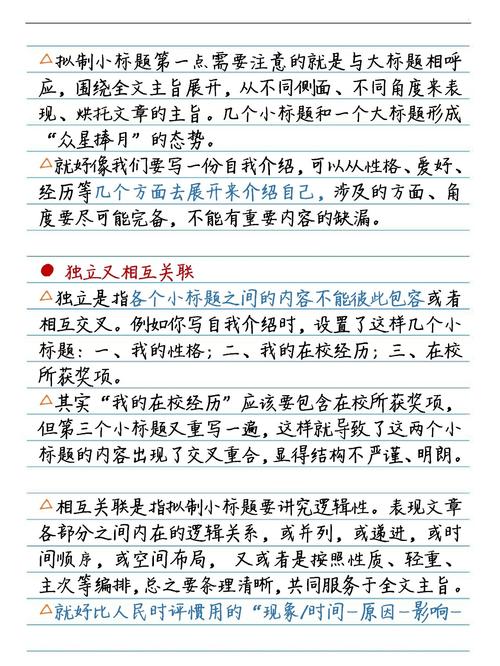 △拟制小标题第一点需要注意的就是与大标题相呼
应，围绕全文主旨展开，从不同侧面、不同角度来表
现、烘托文章的主旨。几个小标题和一个大标题形成
“众星捧月”的态势。
△就好像我们要写一份自我介绍，可以从性格、爱好、
经历等几个方面去展开来介绍自己，涉及的方面、角
度要尽可能完备，不能有重要内容的缺漏。
● 独立又相互关联
△独立是指各个小标题之间的内容不能彼此包容或者
相互交叉。例如你写自我介绍时，设置了这样几个小
标题：一、我的性格；二、我的在校经历；三、在校
所获奖项。
△其实“我的在校经历”应该要包含在校所获奖项，
但第三个小标题又重写一遍，这样就导致了这两个小
标题的内容出现了交叉重合，显得结构不严谨、明朗。
△相互关联是指拟制小标题要讲究逻辑性。表现文章
各部分之间内在的逻辑关系，或并列，或递进，或时
间顺序，或空间布局， 又或者是按照性质、轻重、
主次等编排，总之要条理清晰，共同服务于全文主旨。
△就好比人民时评惯用的“现象/时间—原因—影响—